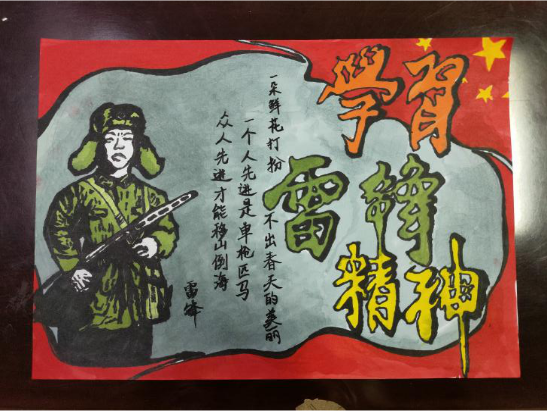 學習
雷鋒
精神
一朵鲜花打扮不出春天的美丽
一个人先进是单枪匹马
众人先进才能移山倒海
雷锋